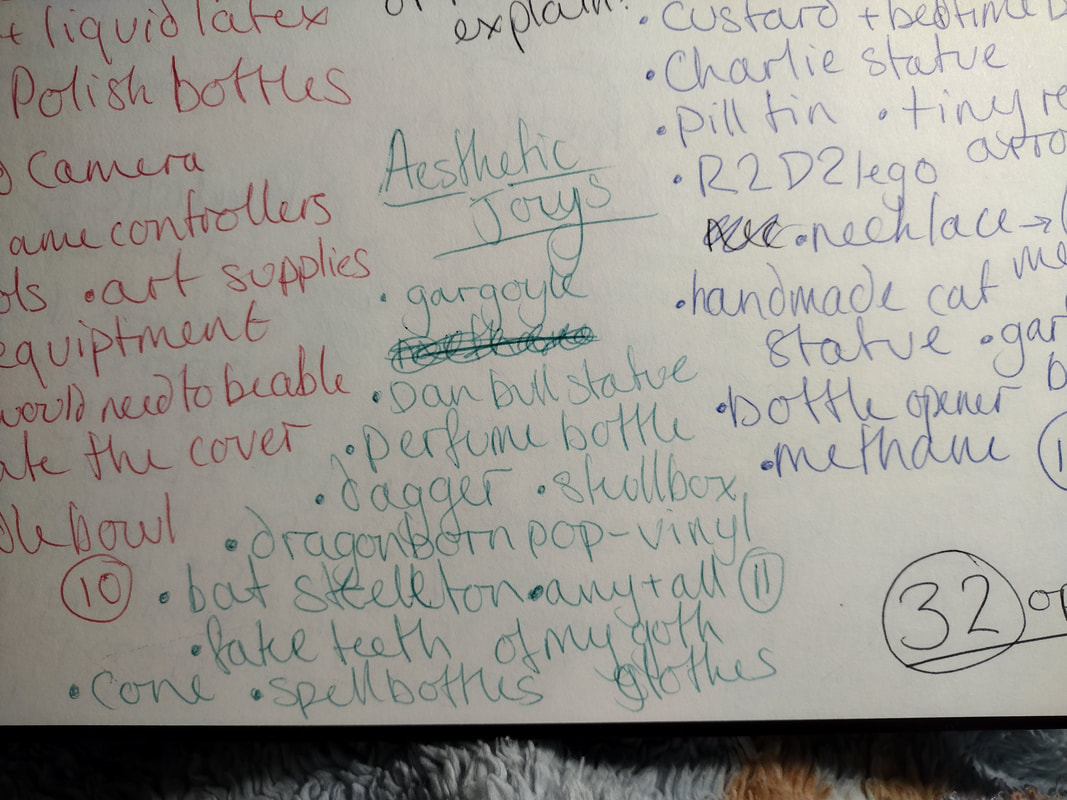 + liquid latex
Polish bottles
Camera
ame controllers
ols • art supplies
equiptment
would need to be able
ate the cover
le bowl
10
explain?
Aesthetic
Joys
• gargoyle
• Dan bull statue
• perfume bottle
• dagger • skullbox
• dragonborn pop-vinyl
• bat skelleton • any + all 11
• fake teeth of my goth
• cone • spell bottles glothes
• custard + bedtime b
• Charlie statue
• pill tin • tiny re
• R2D2 lego
• necklace → (
• handmade cat me
statue • gar
• bottle opener b
• methane
32 op